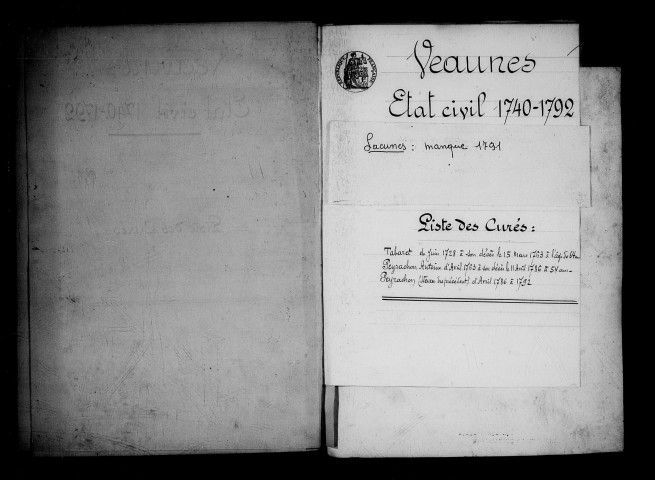 Veaunes
Etat civil 1740-1792
Lacunes : manque 1791
Liste des Curés :
Tabaret de Juin 1728 à son décès le 15 Mars 1763 à l'âge de
Peyrachon Antoine d'Avril 1763 à son décès le 11 Avril 1786 à 54 ans
Peyrachon (neveu du précédent) d'Avril 1786 à 1792